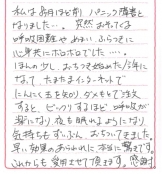 私は毎日ほど前パニック障害と
なりました…。突然おそってくる
呼吸困難やめまい、ふらつきに
心身共にボロボロでした…。
ほんの少し、おちつき始めた1年に
なって、たまたまインターネットで
にんにく玉を知り、ダメもとで注文
すると、ビックリするほど呼吸が
楽になり夜も眠れるようになり
気持ちもずいぶん、おちついてました。
早い効果のあらわれに本当に驚きです。
これからも愛用させて頂きます。感謝